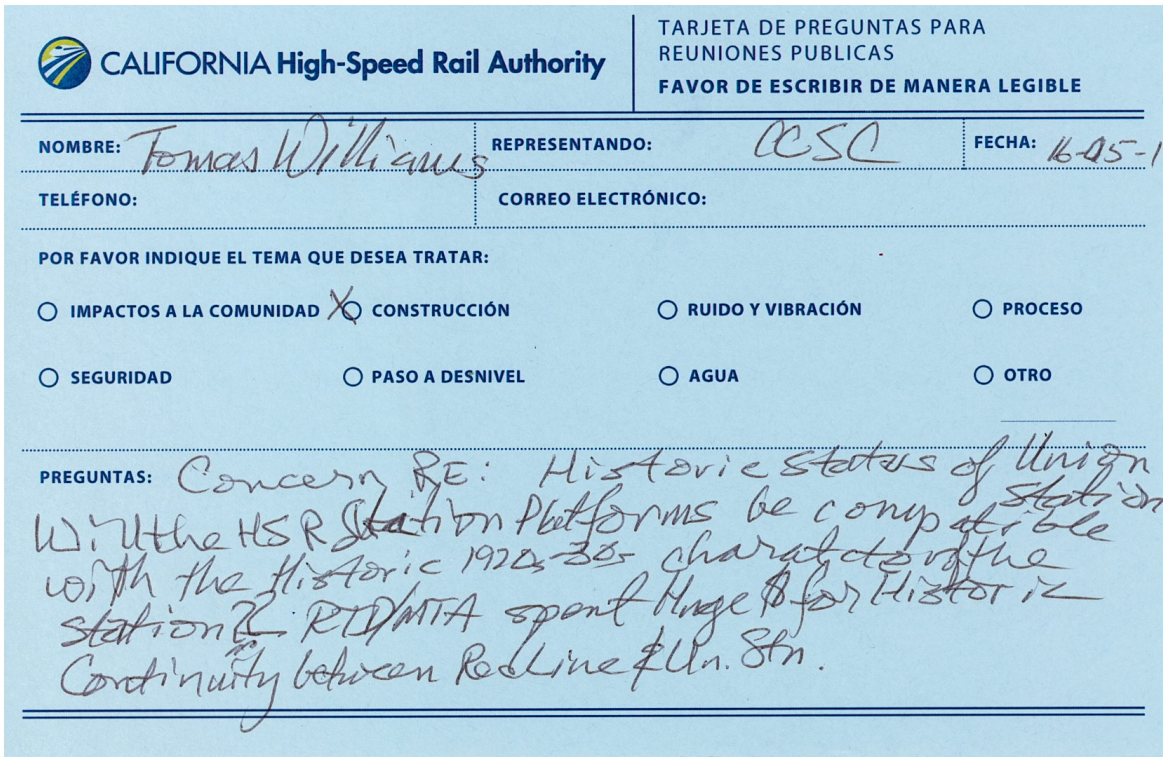 CALIFORNIA High-Speed Rail Authority
TARJETA DE PREGUNTAS PARA
REUNIONES PUBLICAS
FAVOR DE ESCRIBIR DE MANERA LEGIBLE
NOMBRE: Tomas Williams REPRESENTANDO: CCSC FECHA: 16-05-1
TELÉFONO: CORREO ELECTRÓNICO:
POR FAVOR INDIQUE EL TEMA QUE DESEA TRATAR:
IMPACTOS A LA COMUNIDAD X CONSTRUCCIÓN RUIDO Y VIBRACIÓN PROCESO
SEGURIDAD PASO A DESNIVEL AGUA OTRO
PREGUNTAS: Concern RE: Historic Status of Union Station
Will the HSR Station Platforms be compatible
with the Historic 1920s-30s character of the
station? RTD/MTA spent Huge $ for Historic
Continuity between RedLine & Un. Stn.